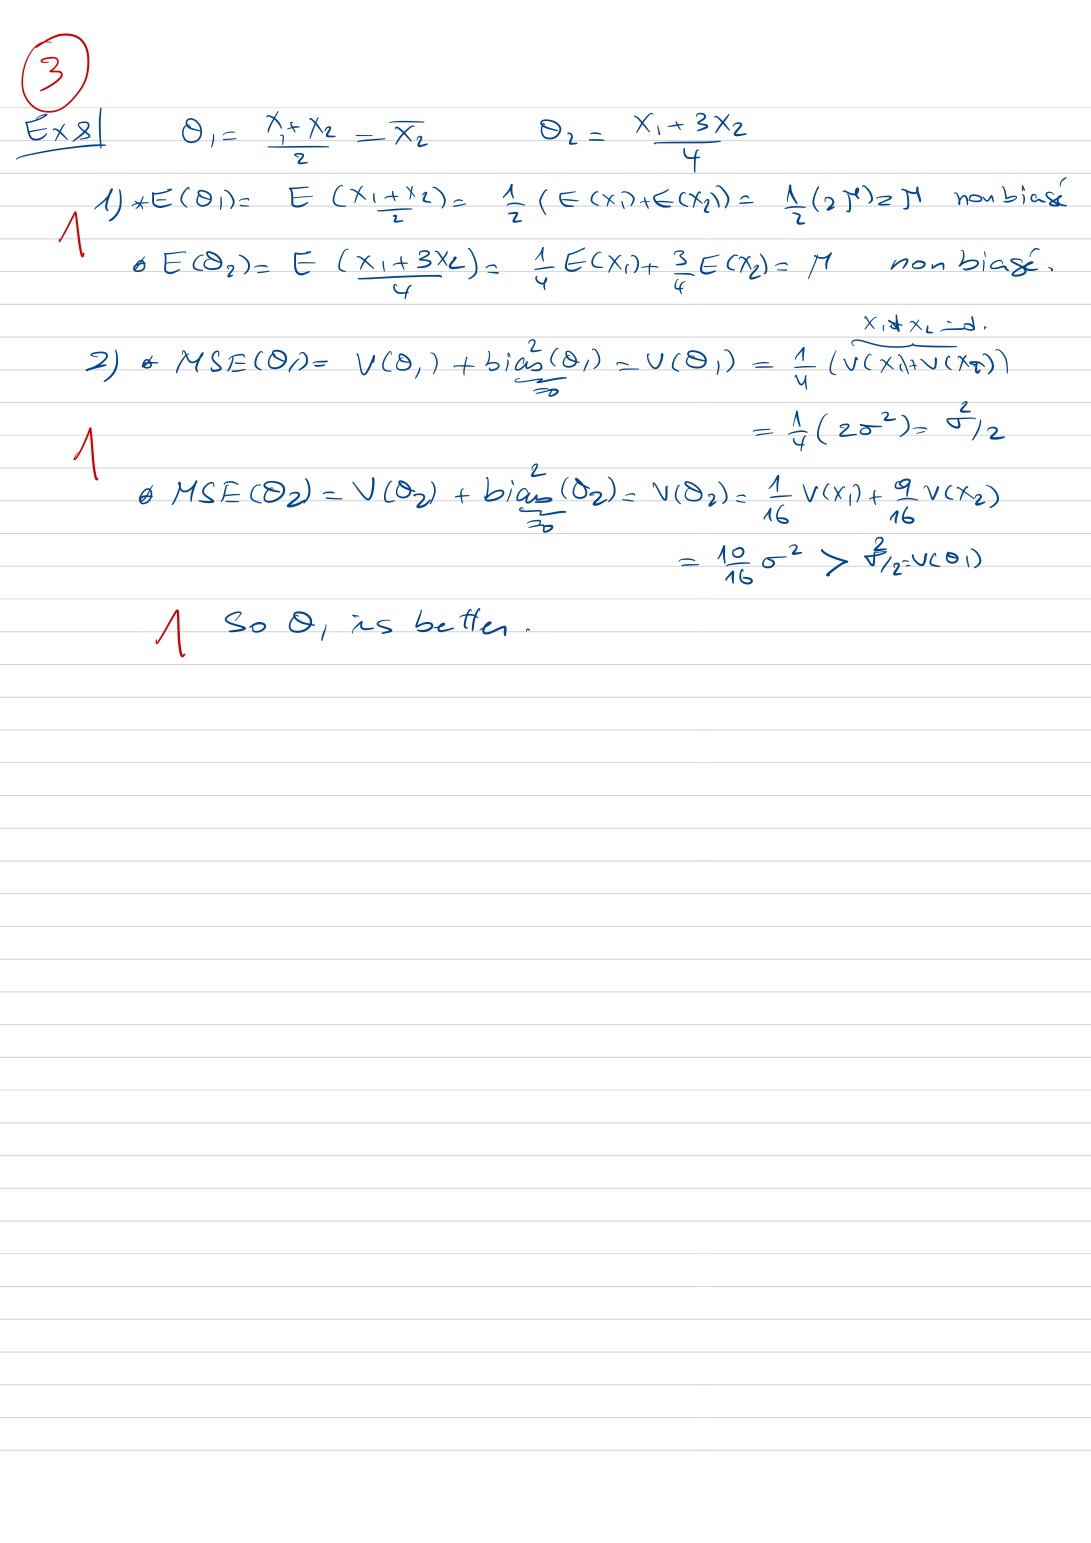 3
Ex 8 θ₁ = (X₁ + X₂)/2 = X̄₂ θ₂ = (X₁ + 3X₂)/4
1) * E(θ₁) = E (X₁ + X₂)/2) = 1/2 (E(X₁) + E(X₂)) = 1/2 (2μ) = μ non biaisé
1
• E(θ₂) = E (X₁ + 3X₂)/4) = 1/4 E(X₁) + 3/4 E(X₂) = μ non biaisé.
X₁ et X₂ ind.
2) • MSE(θ₁) = V(θ₁) + biais²(θ₁) = V(θ₁) = 1/4 (V(X₁) + V(X₂))
=0
= 1/4 (2σ²) = σ²/2
1
• MSE(θ₂) = V(θ₂) + biais²(θ₂) = V(θ₂) = 1/16 V(X₁) + 9/16 V(X₂)
=0
= 10/16 σ² > σ²/2 = V(θ₁)
1 So θ₁ is better.